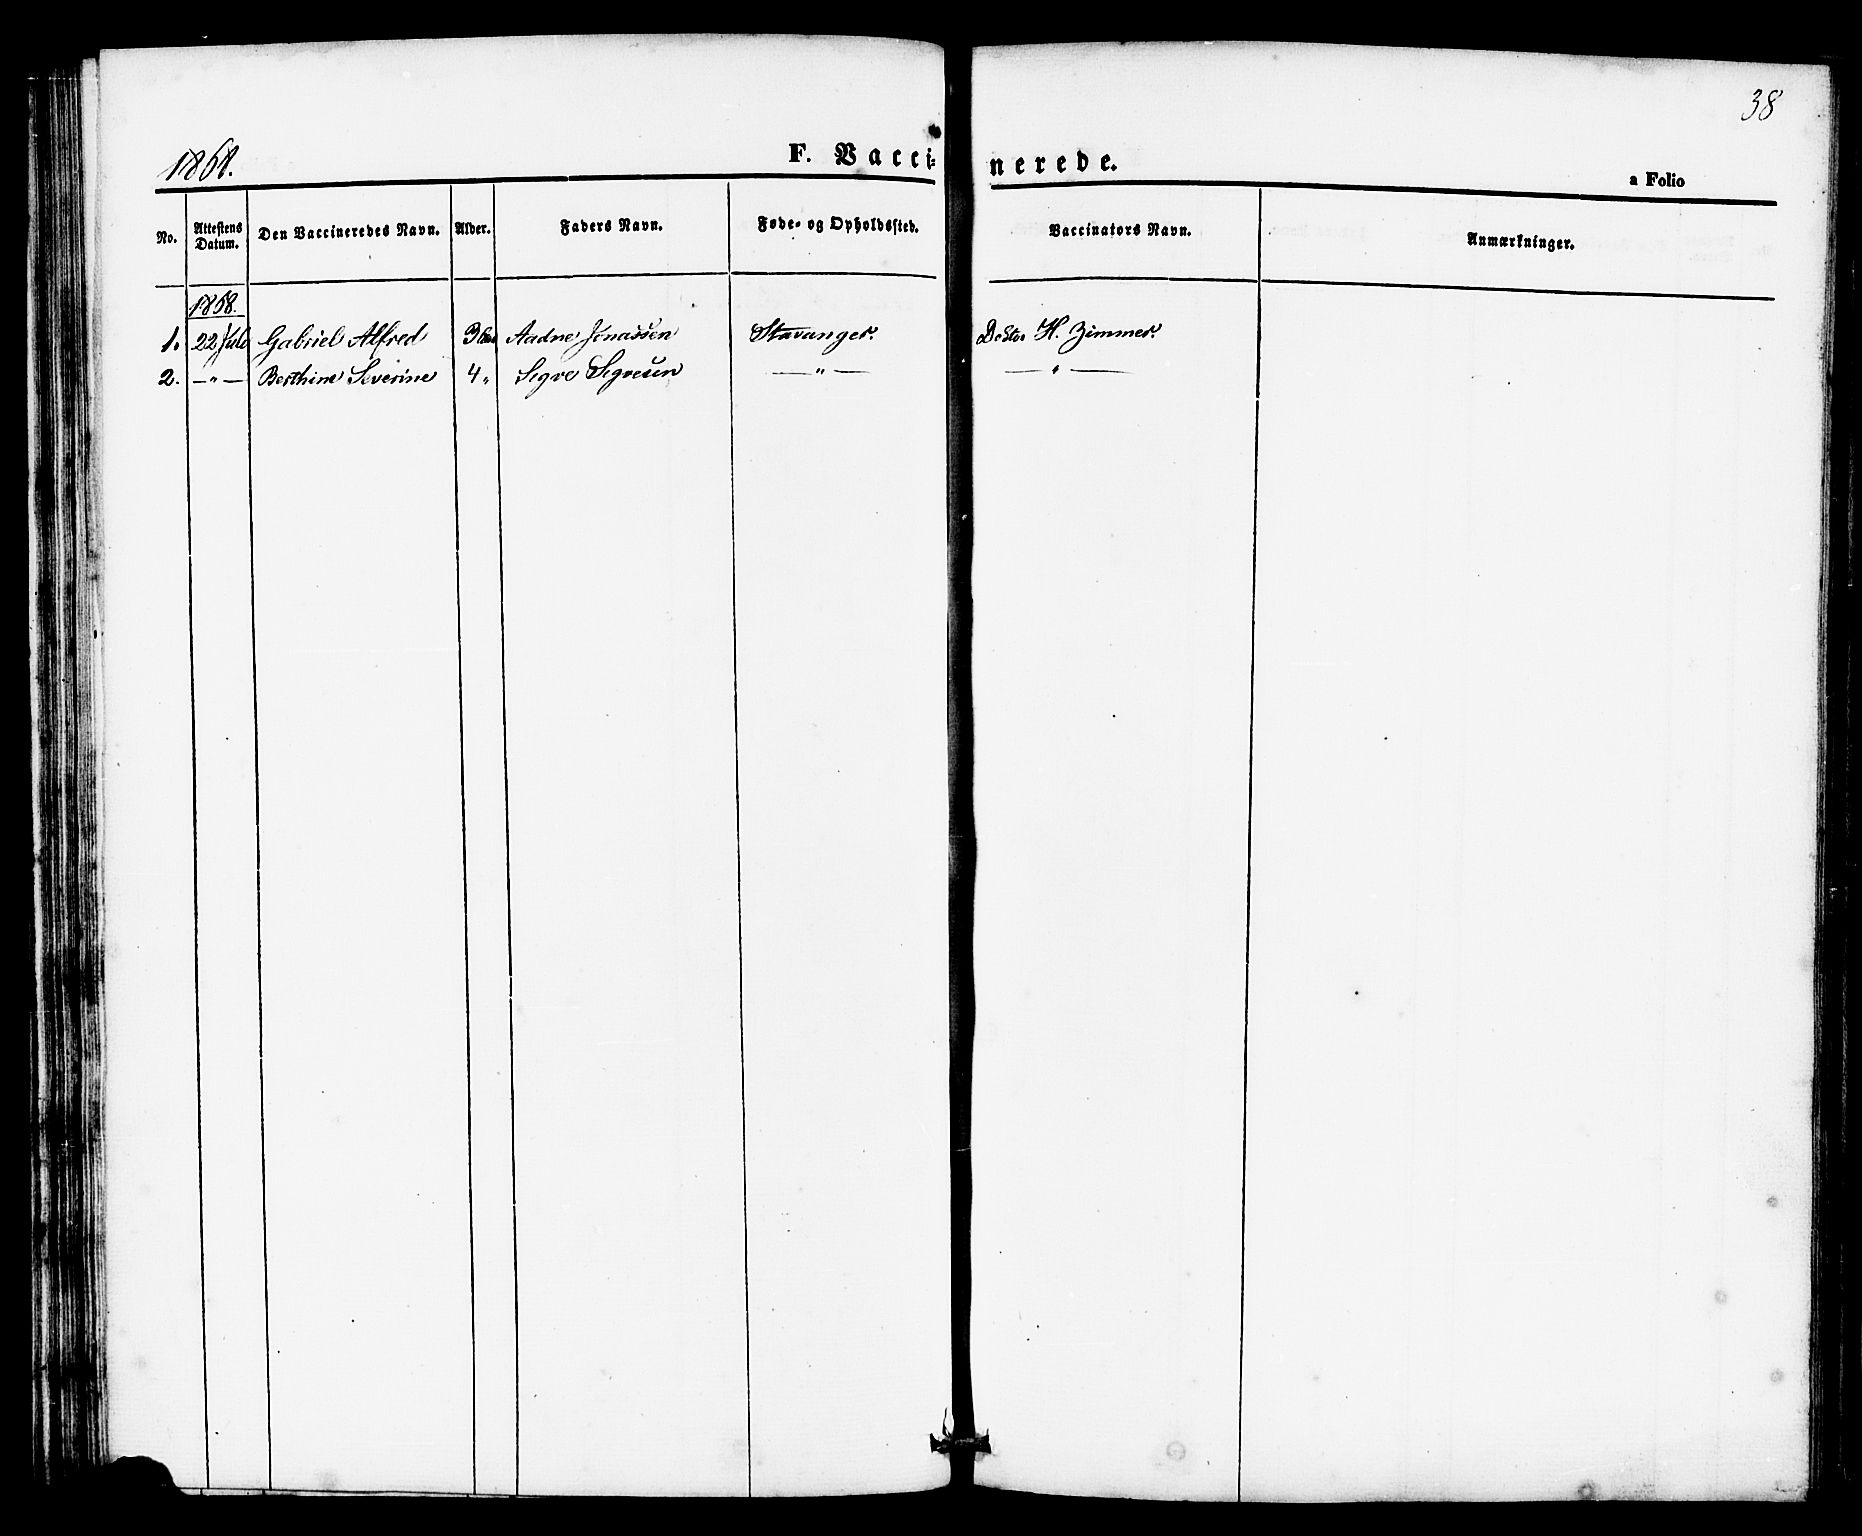 38
1868.
F. Vaccinerede.
a Folio
No. Attestens Datum. Den Vaccineredes Navn. Alder. Faders Navn. Føde- og Opholdssted. Vaccinators Navn. Anmærkninger.
1868.
1. 22 Juli Gabriel Alfred 3 Aadne Jonassen Stavanger. Doktor H. Zimmer.
2. —„— Berthine Severine 4 „ Sigve Sigvesen —„— —„—